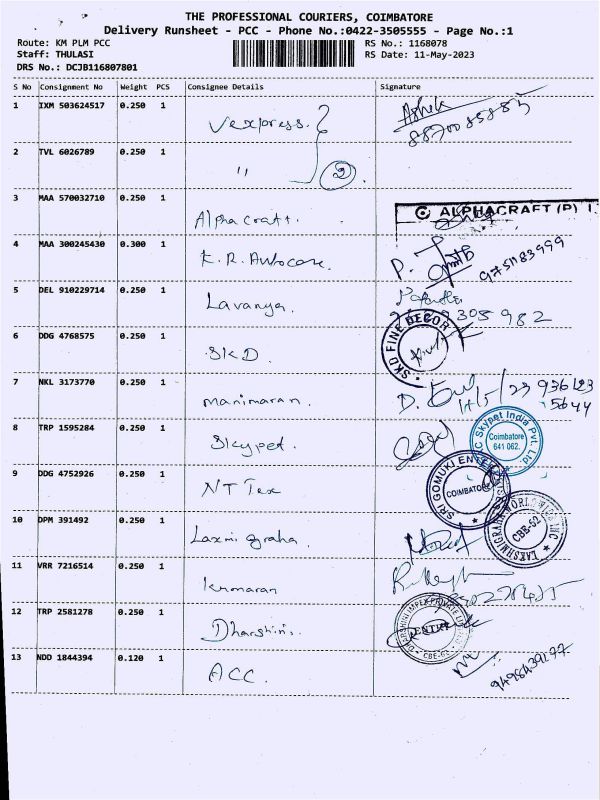 THE PROFESSIONAL COURIERS, COIMBATORE
Delivery Runsheet - PCC - Phone No.:0422-3505555 - Page No.:1
Route: KM PLM PCC
Staff: THULASI
DRS No.: DCJB116807801
RS No.: 1168078
RS Date: 11-May-2023
S No Consignment No Weight PCS Consignee Details Signature
1 IXM 503624517 0.250 1 Vexpress.
2 TVL 6026789 0.250 1 " 2
3 MAA 570032710 0.250 1 Alphacraft. ALPHACRAFT (P)
4 MAA 300245430 0.300 1 K.R. Autocare.
5 DEL 910229714 0.250 1 Lavanya.
6 DDG 4768575 0.250 1 SKD. SKD FINE DECOR
7 NKL 3173770 0.250 1 Manimaran.
8 TRP 1595284 0.250 1 Skypet. Skypet India Pvt. Ltd. Coimbatore 641 062.
9 DDG 4752926 0.250 1 NT Tex SRI GOMUKI COIMBATORE
10 DPM 391492 0.250 1 Laxmi graha. CBE-62
11 VRR 7216514 0.250 1 Kumaran
12 TRP 2581278 0.250 1 Dharshini.
13 NDD 1844394 0.120 1 ACC.